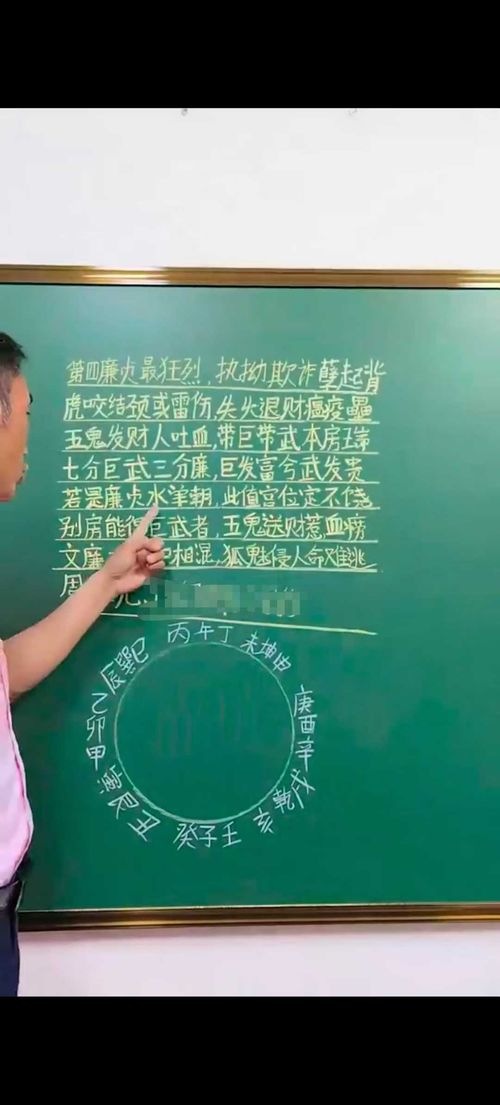 第四廉贞最狂烈，执拗欺诈孽起背
虎咬结颈或雷伤，失火退财瘟疫
五鬼发财人吐血，带巨带武本房
七分巨武三分廉，巨发富兮武发贵
若是廉贞水朝，此值宫位定不饶
别房能得巨武者，五鬼送财惹血痨
文廉相混，狐魅侵人命难逃
周
辰巽巳 丙午丁 未坤申
乙卯甲 庚酉辛
寅艮丑 癸子壬 亥乾戌